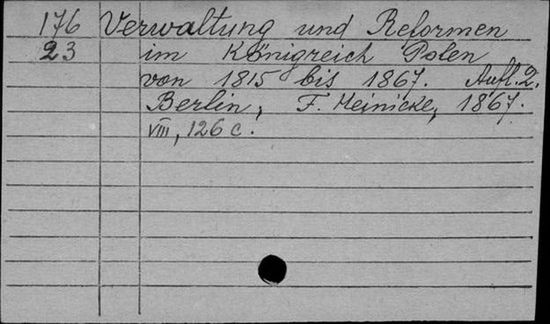 176 Verwaltung und Reformen
23 im Königreich Polen
von 1815 bis 1867. Aufl. 2.
Berlin, F. Heinicke, 1867.
VIII, 126 c.